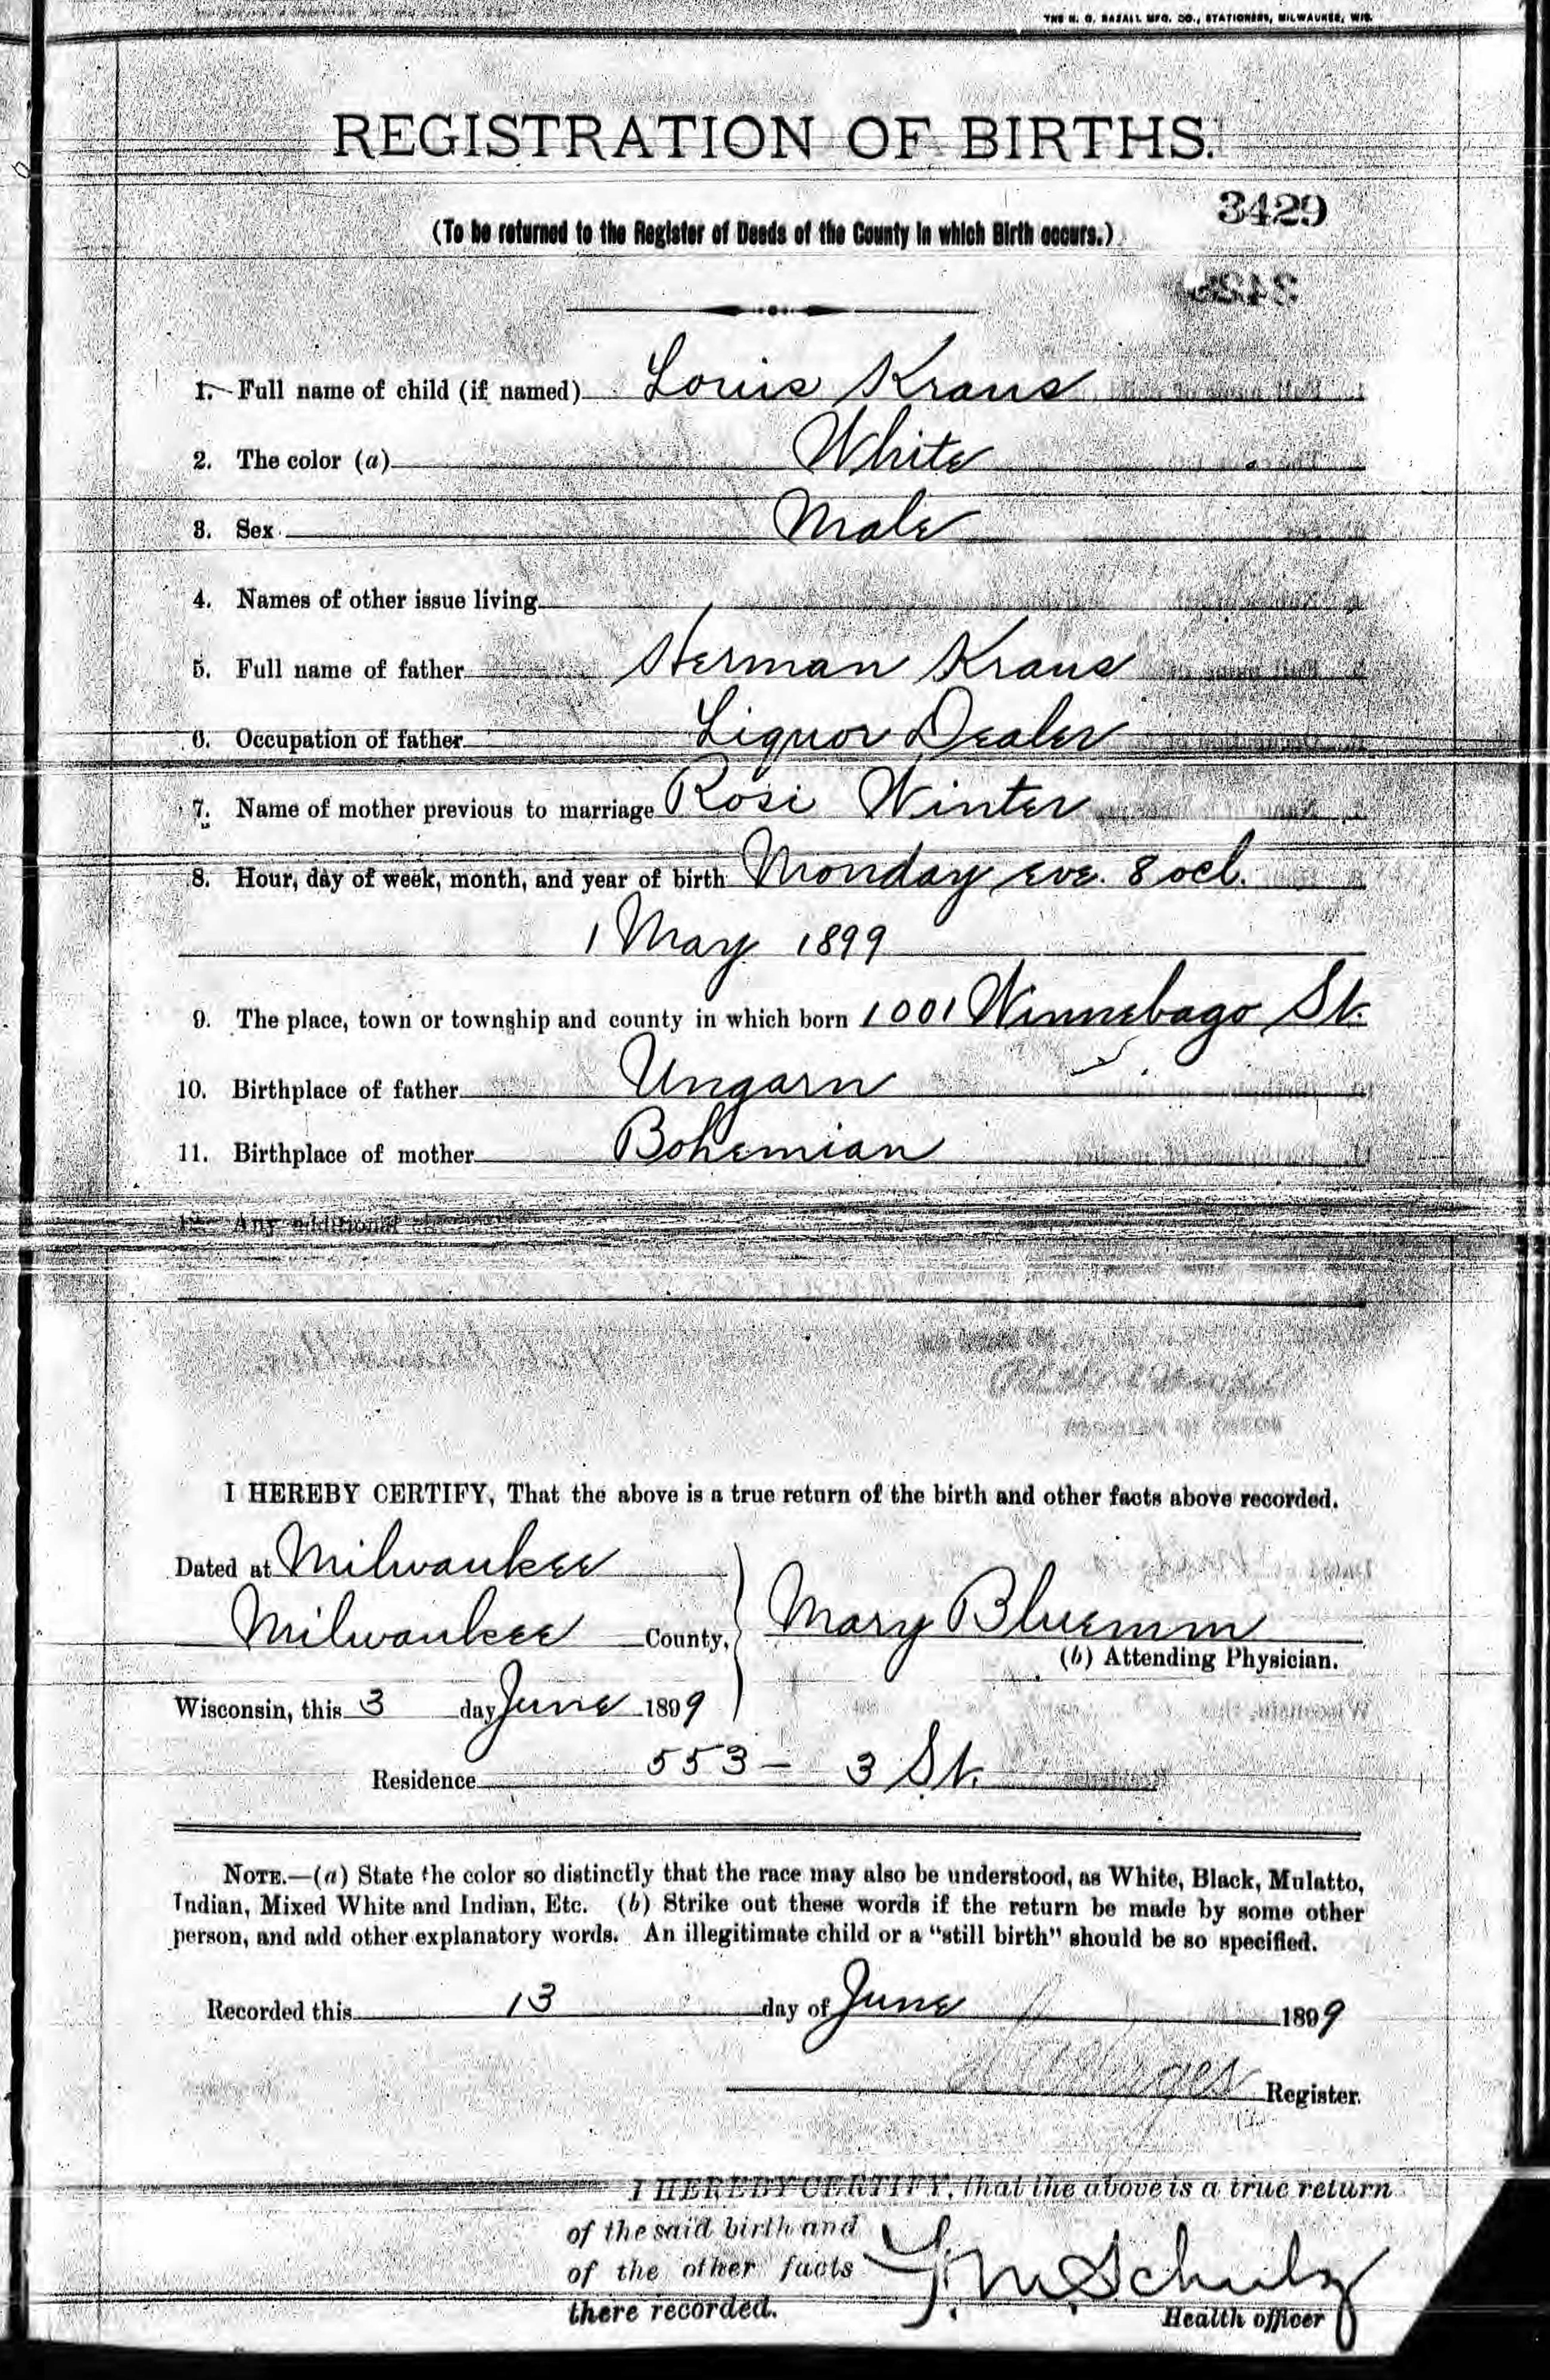 THE H. G. RAZALL MFG. CO., STATIONERS, MILWAUKEE, WIS.
REGISTRATION OF BIRTHS.
3429
(To be returned to the Register of Deeds of the County in which Birth occurs.)
1. Full name of child (if named) Louis Kraus
2. The color (a) White
3. Sex Male
4. Names of other issue living
5. Full name of father Herman Kraus
6. Occupation of father Liquor Dealer
7. Name of mother previous to marriage Rosi Winter
8. Hour, day of week, month, and year of birth Monday eve. 8 ocl.
1 May 1899
9. The place, town or township and county in which born 1001 Winnebago St.
10. Birthplace of father Ungarn
11. Birthplace of mother Bohemian
Any additional
I HEREBY CERTIFY, That the above is a true return of the birth and other facts above recorded.
Dated at Milwaukee
Milwaukee County, Mary Bluemm
(b) Attending Physician.
Wisconsin, this 3 day June 1899
Residence 553 - 3 St.
NOTE.—(a) State the color so distinctly that the race may also be understood, as White, Black, Mulatto,
Indian, Mixed White and Indian, Etc. (b) Strike out these words if the return be made by some other
person, and add other explanatory words. An illegitimate child or a "still birth" should be so specified.
Recorded this 13 day of June 1899
Register.
I HEREBY CERTIFY, that the above is a true return
of the said birth and
of the other facts
there recorded.
Schulz
Health officer